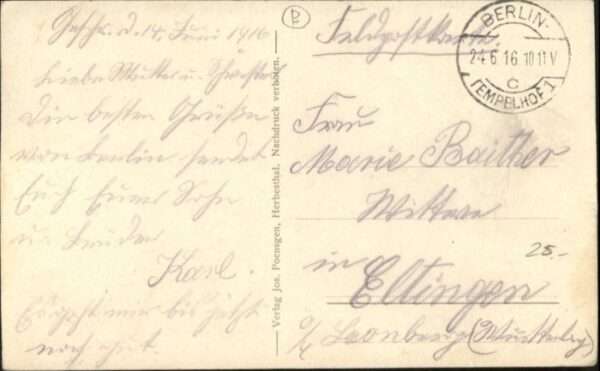 Geschr. d. 14. Juni 1916
Liebe Mutter u. Schwester
Die besten Grüße
von Berlin sendet
Euch Euer Sohn
u. Bruder
Karl.
Es geht mir bis jetzt
noch gut.
Verlag Jos. Poensgen, Herbesthal. Nachdruck verboten.
B
Feldpostkarte.
BERLIN-
24.6.16.10-11V
C
TEMPELHOF 1
Frau
Marie Baither
Witwe
in
Eltingen
25.-
Leonberg (Württbg)